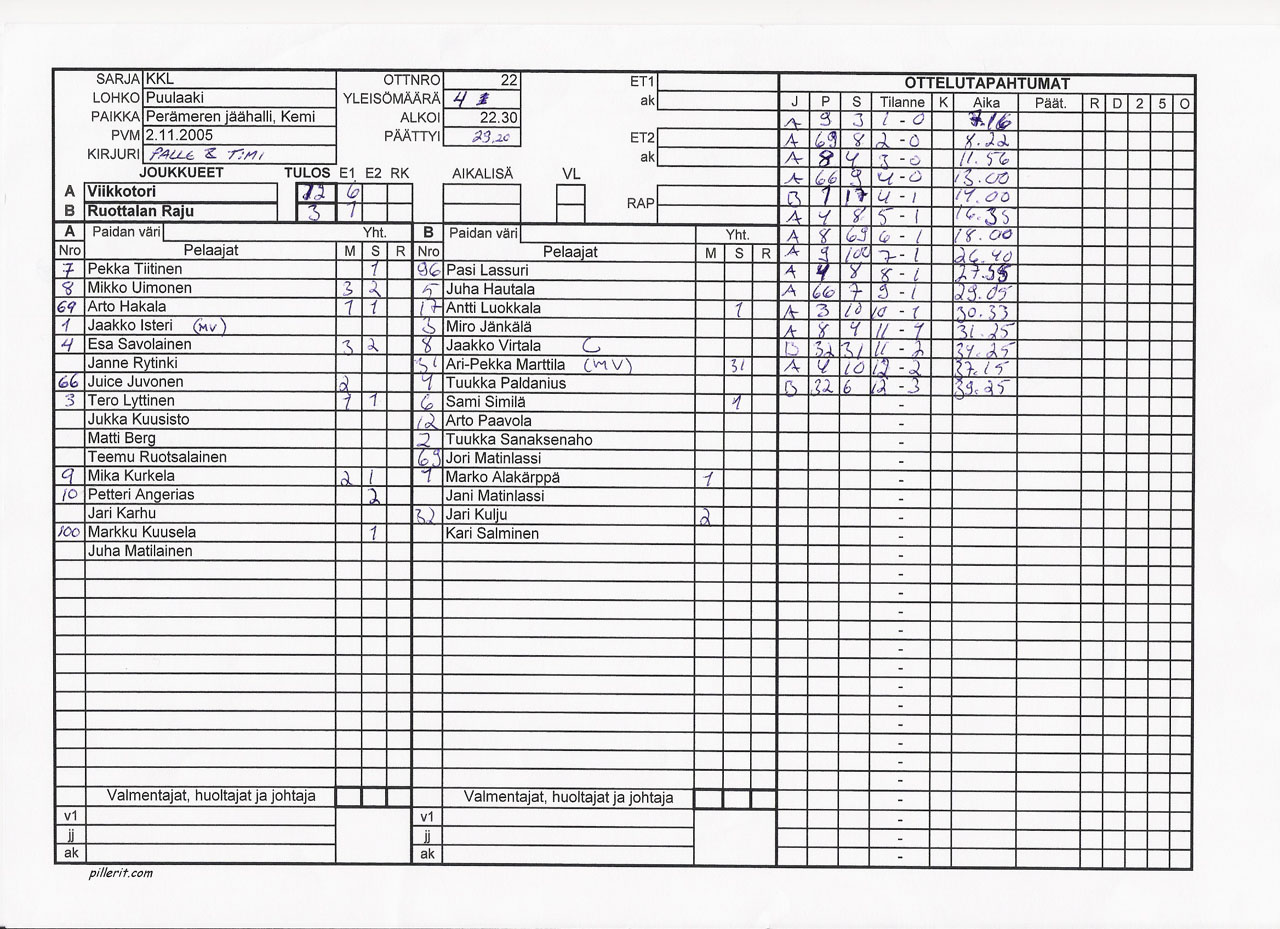 SARJA KKL OTTNRO 22 ET1 OTTELUTAPAHTUMAT
LOHKO Puulaaki YLEISÖMÄÄRÄ 4 ak J P S Tilanne K Aika Päät. R D 2 5 O
PAIKKA Perämeren jäähalli, Kemi ALKOI 22.30
PVM 2.11.2005 PÄÄTTYI 23.20 ET2
KIRJURI PALLE & TIMI ak
JOUKKUEET TULOS E1 E2 RK AIKALISÄ VL
A Viikkotori 12 6 RAP
B Ruottalan Raju 3 1
A 9 3 1 - 0 7.16
A 69 8 2 - 0 8.22
A 8 4 3 - 0 11.56
A 66 9 4 - 0 13.00
B 1 17 4 - 1 14.00
A 4 8 5 - 1 16.35
A 8 69 6 - 1 18.00
A 9 100 7 - 1 26.40
A 4 8 8 - 1 27.55
A 66 7 9 - 1 29.05
A 3 10 10 - 1 30.33
A 8 4 11 - 1 31.25
B 32 31 11 - 2 34.25
A 4 10 12 - 2 37.15
B 32 6 12 - 3 39.25
A Paidan väri Yht. B Paidan väri Yht.
Nro Pelaajat M S R Nro Pelaajat M S R
7 Pekka Tiitinen 1 96 Pasi Lassuri
8 Mikko Uimonen 3 2 5 Juha Hautala
69 Arto Hakala 1 1 17 Antti Luokkala 1
1 Jaakko Isteri (MV) 3 Miro Jänkälä
4 Esa Savolainen 3 2 8 Jaakko Virtala C
Janne Rytinki 31 Ari-Pekka Marttila (MV) 31
66 Juice Juvonen 2 4 Tuukka Paldanius
3 Tero Lyttinen 1 1 6 Sami Similä 1
Jukka Kuusisto 12 Arto Paavola
Matti Berg 2 Tuukka Sanaksenaho
Teemu Ruotsalainen 69 Jori Matinlassi
9 Mika Kurkela 2 1 1 Marko Alakärppä 1
10 Petteri Angerias 2 Jani Matinlassi
Jari Karhu 32 Jari Kulju 2
100 Markku Kuusela 1 Kari Salminen
Juha Matilainen
Valmentajat, huoltajat ja johtaja Valmentajat, huoltajat ja johtaja
v1 v1
jj jj
ak ak
pillerit.com